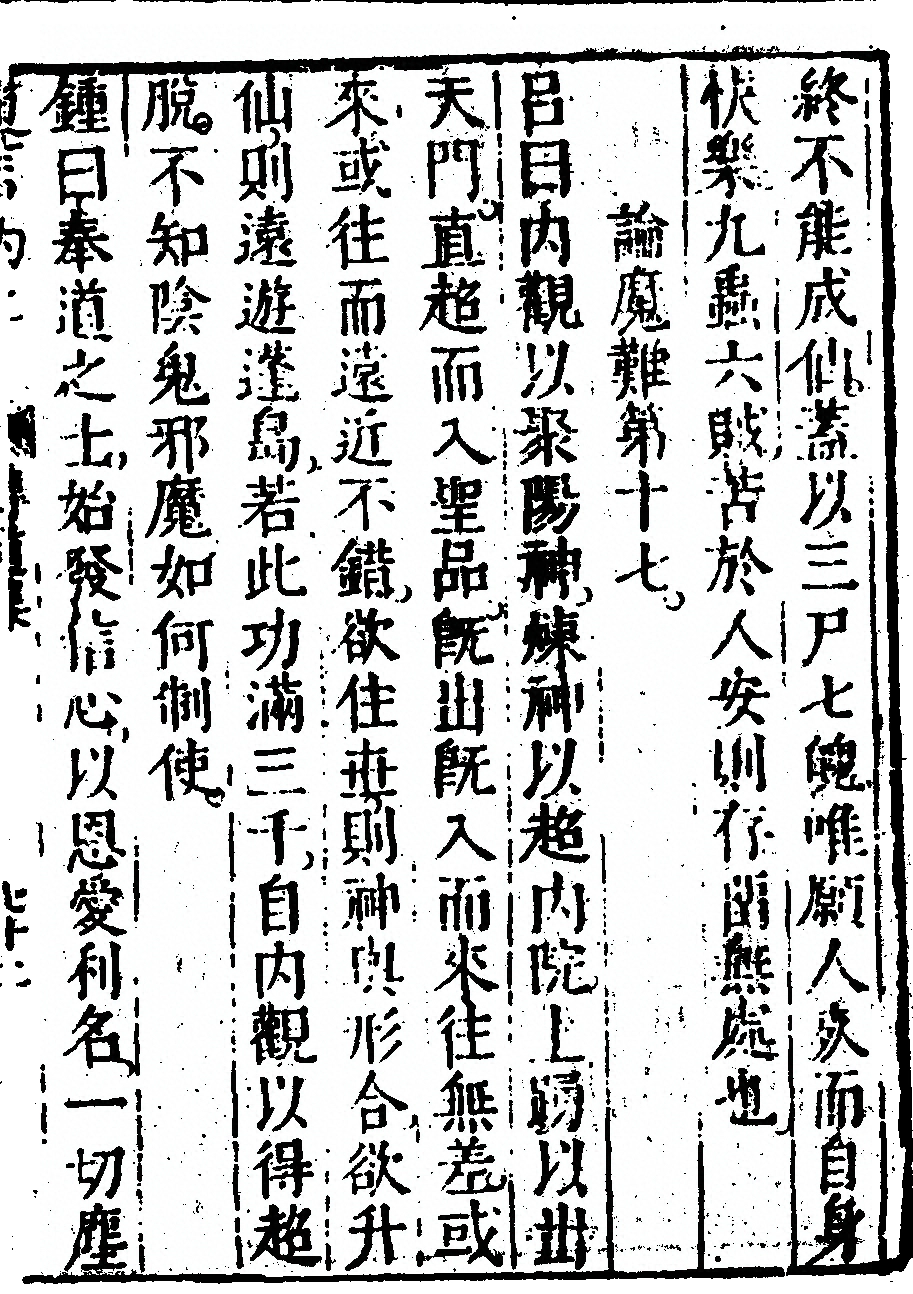 終不能成仙蓋以三尸七魄唯願人死而自身
快樂九蟲六賊苦於人安則存留無處也
論魔難第十七
呂曰內觀以聚陽神煉神以超內院上踴以出
天門直超而入聖品既出既入而來往無差或
來或往而遠近不錯欲住世則神與形合欲升
仙則遠遊蓬島若此功滿三千自內觀以得超
脫不知陰鬼邪魔如何制使
鍾曰奉道之士始發信心以恩愛利名一切塵